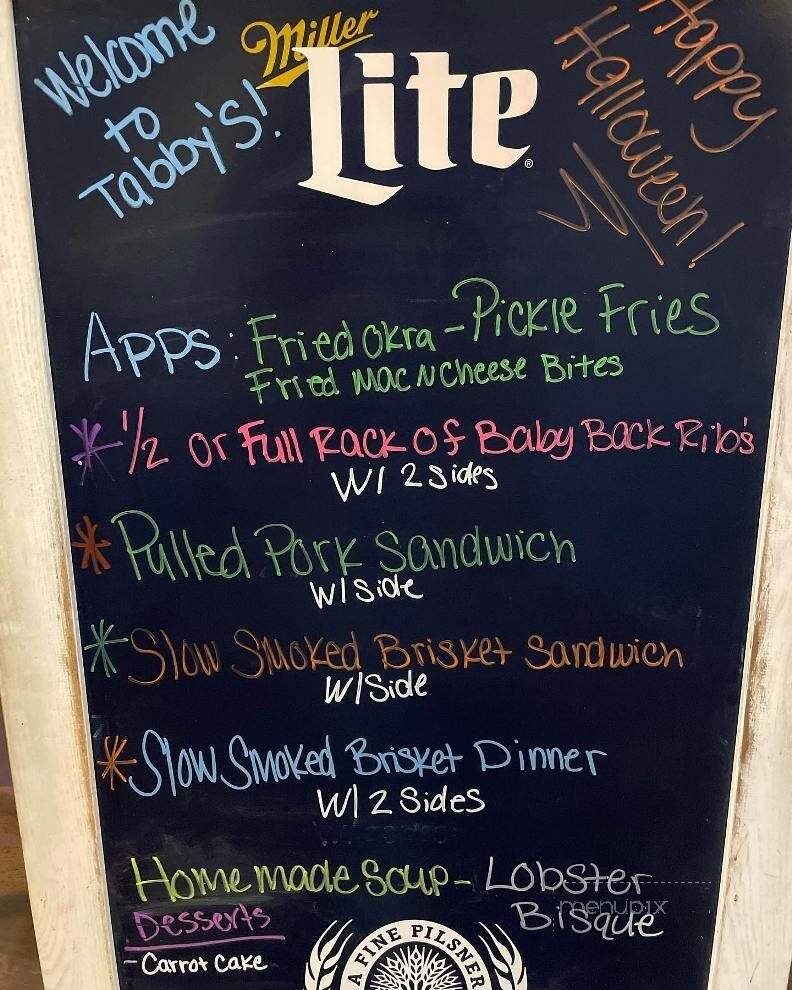 Welcome
to
Tabby's!
Miller
Lite
Happy
Halloween!
Apps: Fried Okra - Pickle Fries
Fried Mac N Cheese Bites
* 1/2 or Full Rack Of Baby Back Rib's
W/ 2 Sides
* Pulled Pork Sandwich
W/ Side
* Slow Smoked Brisket Sandwich
W/ Side
* Slow Smoked Brisket Dinner
W/ 2 Sides
Homemade Soup - Lobster
Bisque
menupix
Desserts
- Carrot Cake
A FINE PILSNER